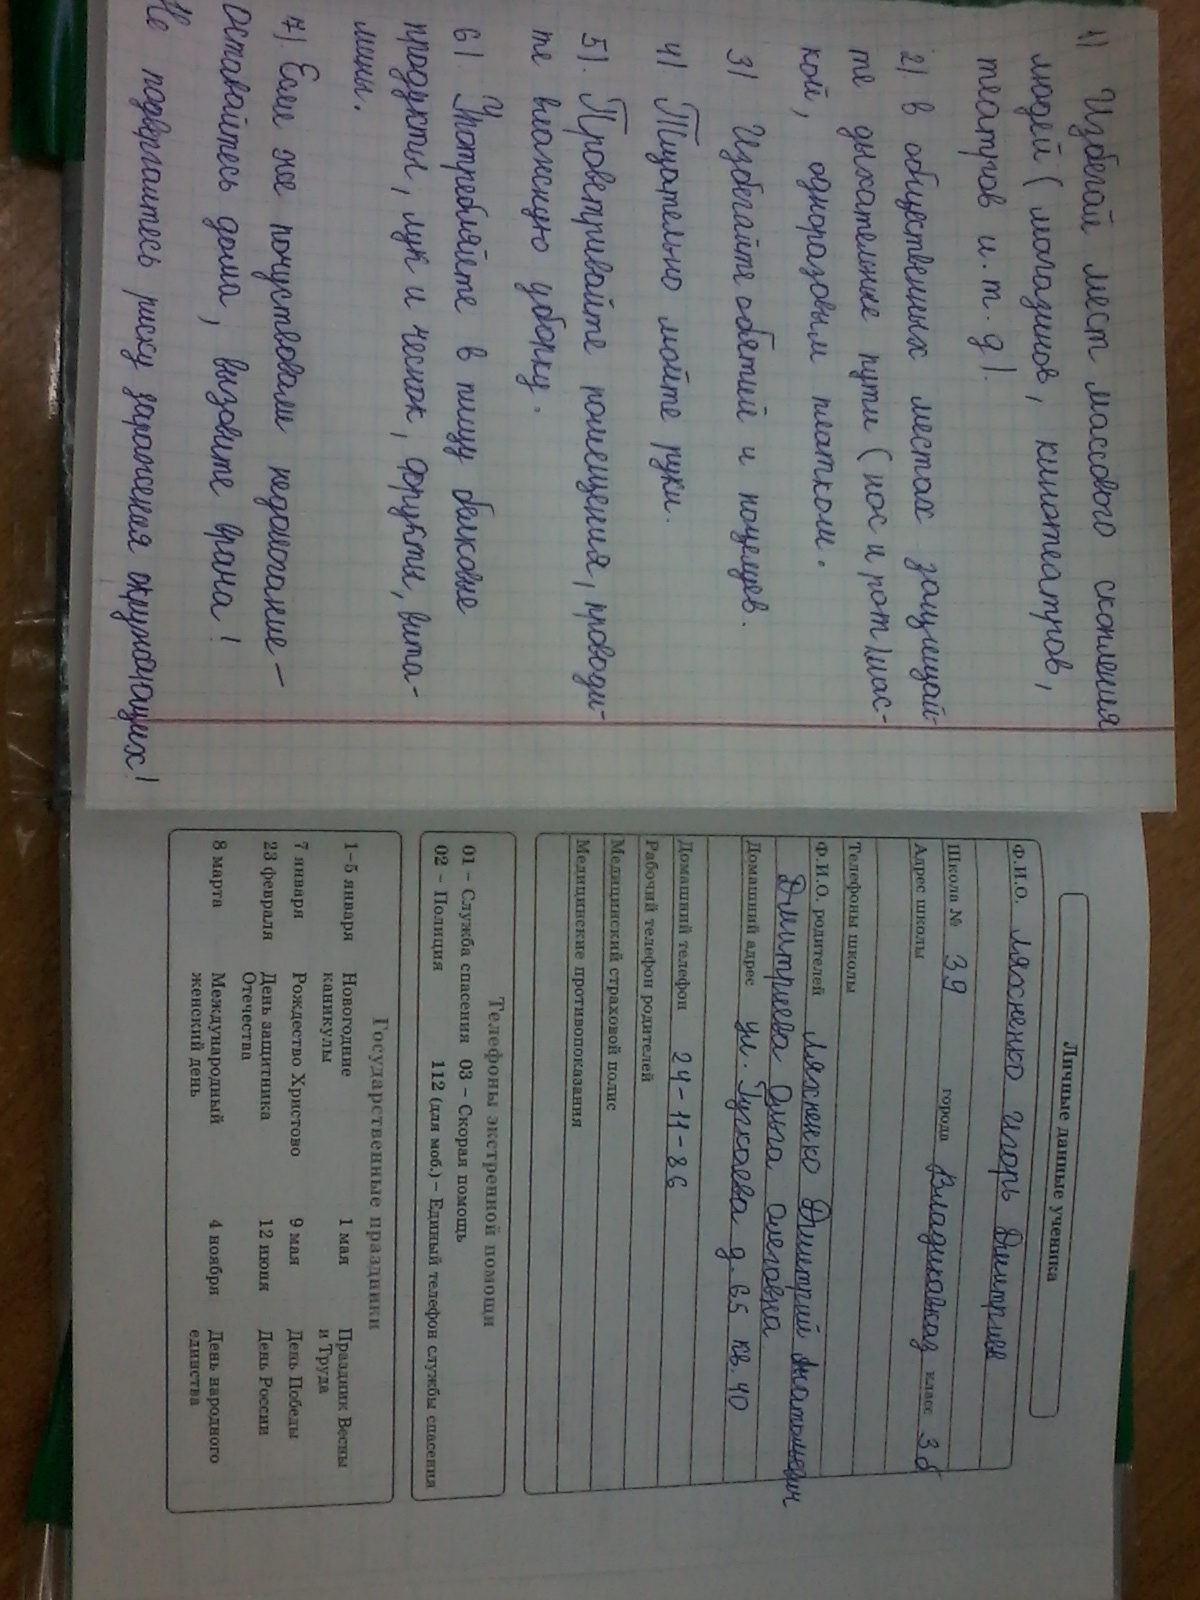 1) Избегай мест массового скопления
людей ( магазинов, кинотеатров,
театров и.т.д).
2) в общественных местах защищай-
те дыхательные пути ( нос и рот) мас-
кой, одноразовым платком.
3) Избегайте объятий и поцелуев.
4) Тщательно мойте руки.
5). Проветривайте помещения, проводи-
те влажную уборку.
6) Употребляйте в пищу белковые
продукты, лук и чеснок, фрукты, вита-
мины.
7) Если же почуствовали недомогание –
оставайтесь дома, вызовите врача!
Не подвергайтесь риску заражения окружающих!
Личные данные ученика
Ф.И.О. Ляхненко Игорь Дмитриев
Школа № 39 города Владикавказ класс 3б
Адрес школы
Телефоны школы
Ф.И.О. родителей Ляхненко Дмитрий Анатольевич
Дмитриева Ольга олеговна
Домашний адрес ул. Гугкаева д. 65 кв. 40
Домашний телефон 24-11-86
Рабочий телефон родителей
Медицинский страховой полис
Медицинские противопоказания
Телефоны экстренной помощи
01 – Служба спасения 03 – Скорая помощь
02 – Полиция 112 (для моб.) – Единый телефон службы спасения
Государственные праздники
1–5 января Новогодние
каникулы
7 января Рождество Христово
23 февраля День защитника
Отечества
8 марта Международный
женский день
1 мая Праздник Весны
и Труда
9 мая День Победы
12 июня День России
4 ноября День народного
единства